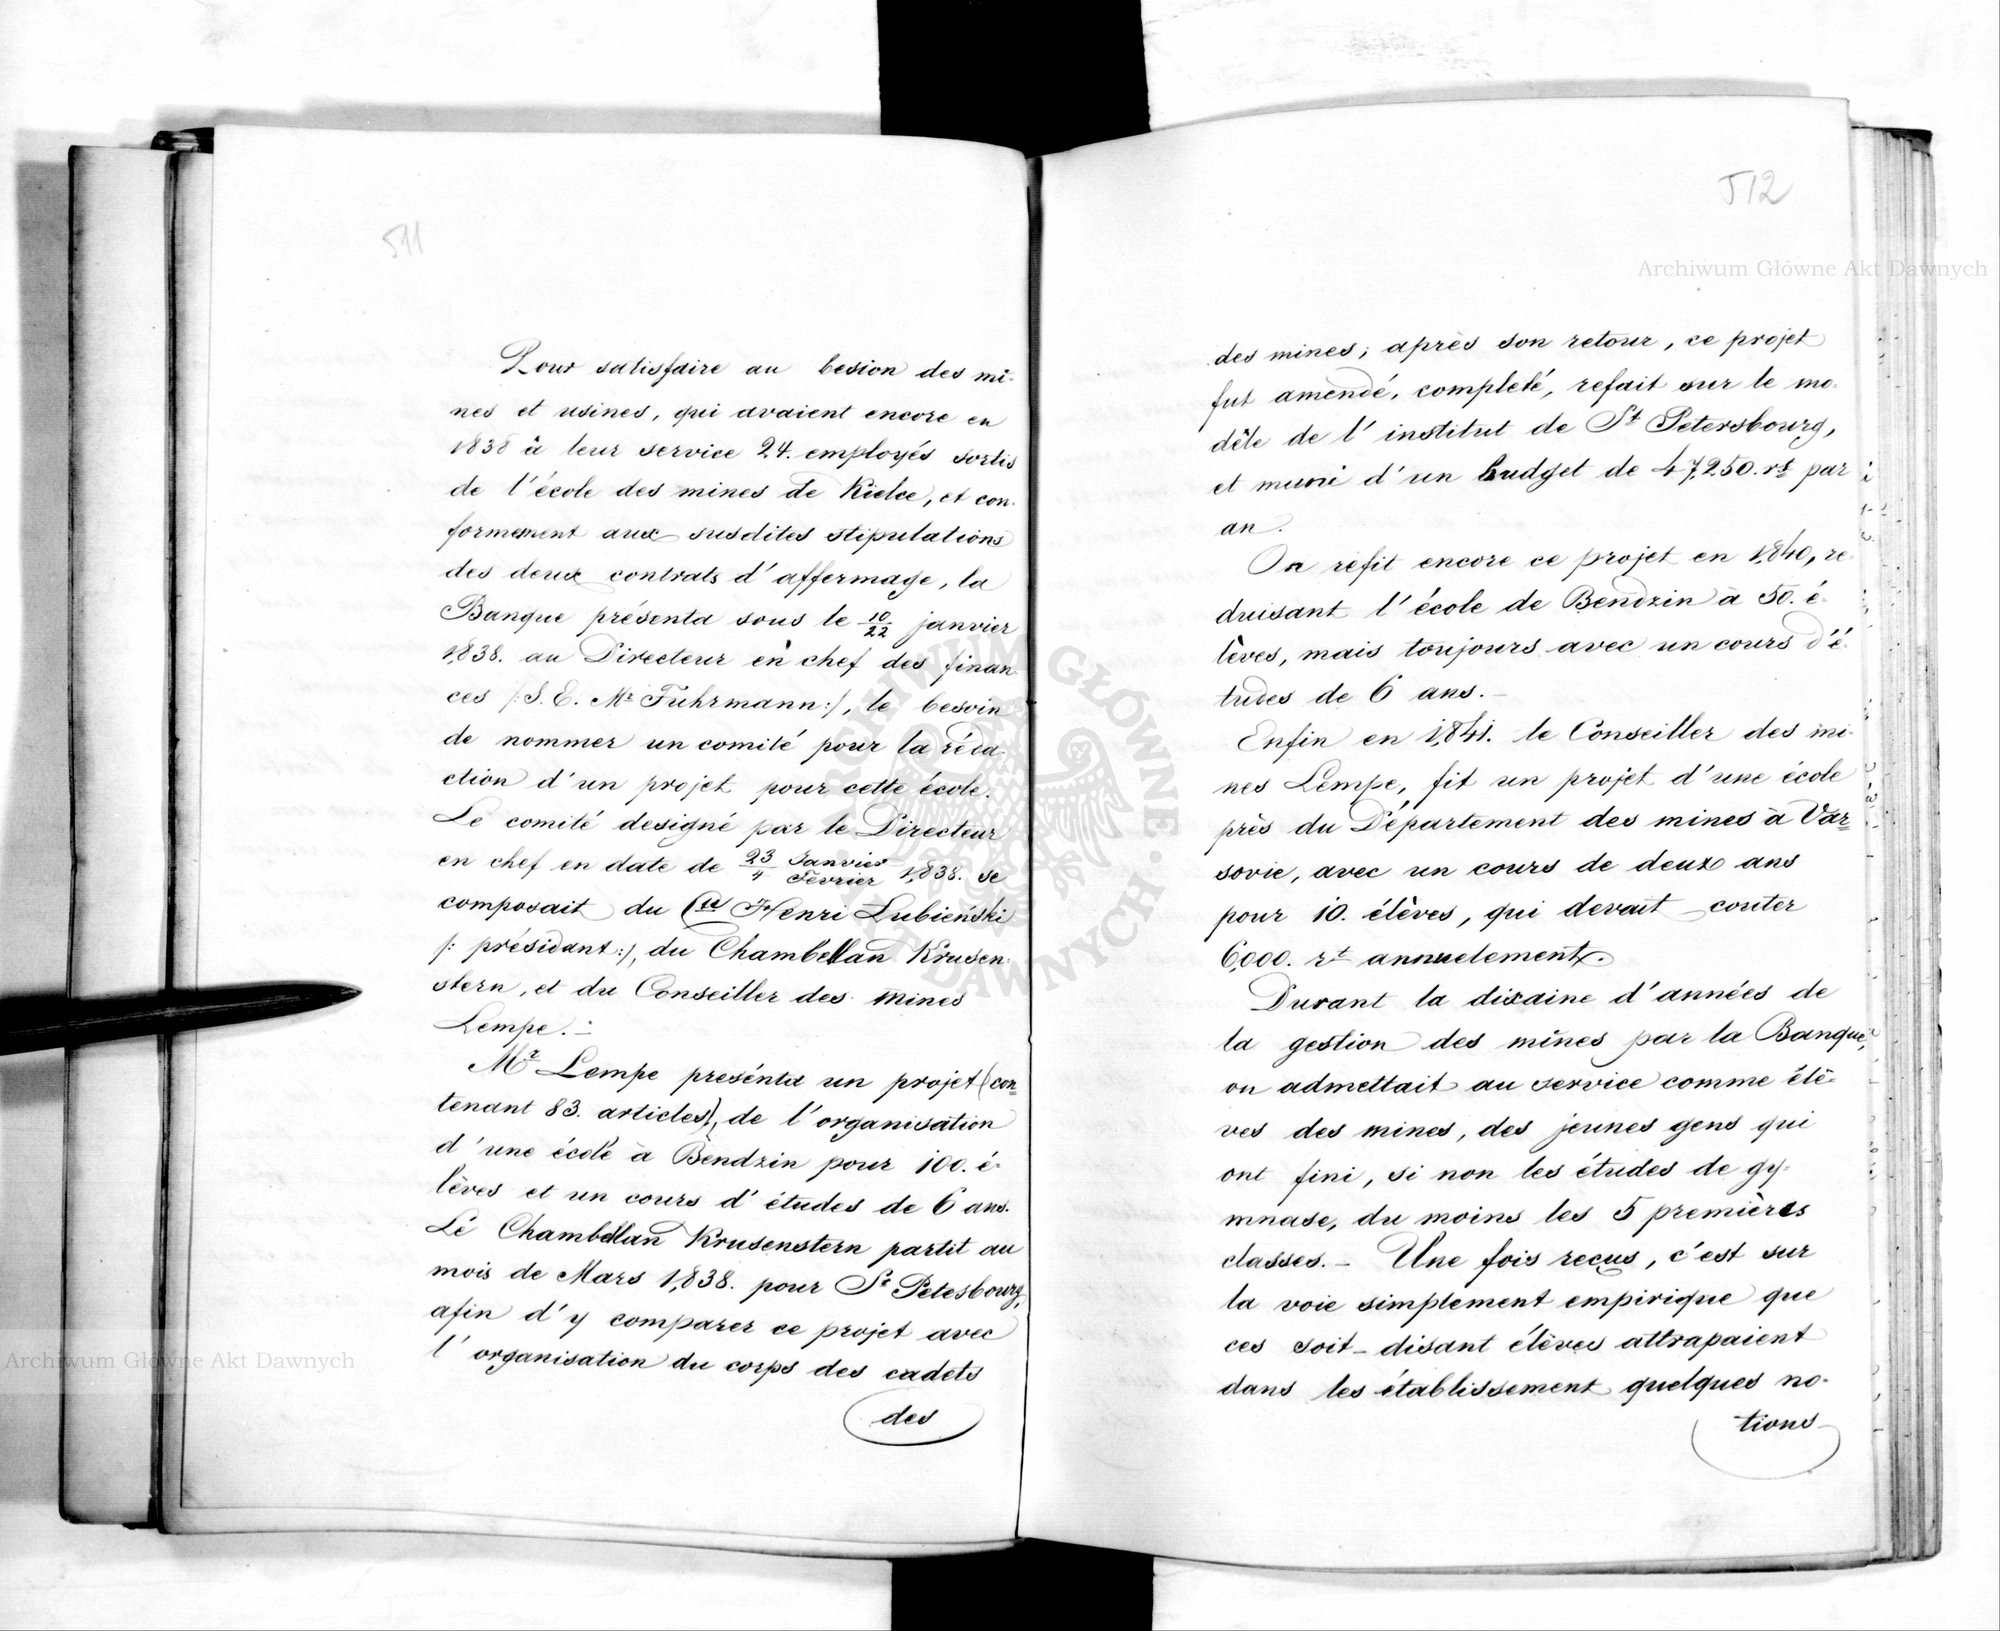 511
Pour satisfaire au besion des mi-
nes et usines, qui avaient encore en
1838 à leur service 24. employés sortis
de l'école des mines de Kielce, et con-
formement aux susdites stipulations
des deux contrats d'affermage, la
Banque présenta sous le 10/22 janvier
1838. au Directeur en chef des finan-
ces /:S. E. Mr Fuhrmann:/, le besoin
de nommer un comité pour la réda-
ction d'un projet pour cette école.
Le comité designé par le Directeur
en chef en date de 23 Janvier/4 Fevrier 1838. se
composait du Cte Henri Lubieński
/: présidant:/, du Chambellan Krusen-
stern, et du Conseiller des mines
Lempe.-
Mr Lempe presénta un projet (con=
tenant 83. articles), de l'organisation
d'une école à Bendzin pour 100. é-
lèves et un cours d'études de 6 ans.
Le Chambellan Krusenstern partit au
mois de Mars 1838. pour St Petesbourg,
afin d'y comparer ce projet avec
l'organisation du corps des cadets
des
512
des mines; après son retour, ce projet
fut amendé, completé, refait sur le mo-
dèle de l'institut de St Petersbourg,
et muni d'un budget de 47,250. rt par
an.
On refit encore ce projet en 1840, re-
duisant l'école de Bendzin à 50. é-
lèves, mais toujours avec un cours d'é-
tudes de 6 ans.-
Enfin en 1841. le Conseiller des mi-
nes Lempe, fit un projet d'une école
près du Département des mines à Var=
sovie, avec un cours de deux ans
pour 10. élèves, qui devait couter
6,000. rt annuelement.
Durant la dixaine d'années de
la gestion des mines par la Banque,
on admettait au service comme élè-
ves des mines, des jeunes gens qui
ont fini, si non les études de gy-
mnase, du moins les 5 premières
classes.- Une fois reçus, c'est sur
la voie simplement empirique que
ces soit-disant élèves attrapaient
dans les établissement quelques no-
tions
Archiwum Główne Akt Dawnych
Archiwum Główne Akt Dawnych
ARCHIWUM GŁÓWNE AKT DAWNYCH